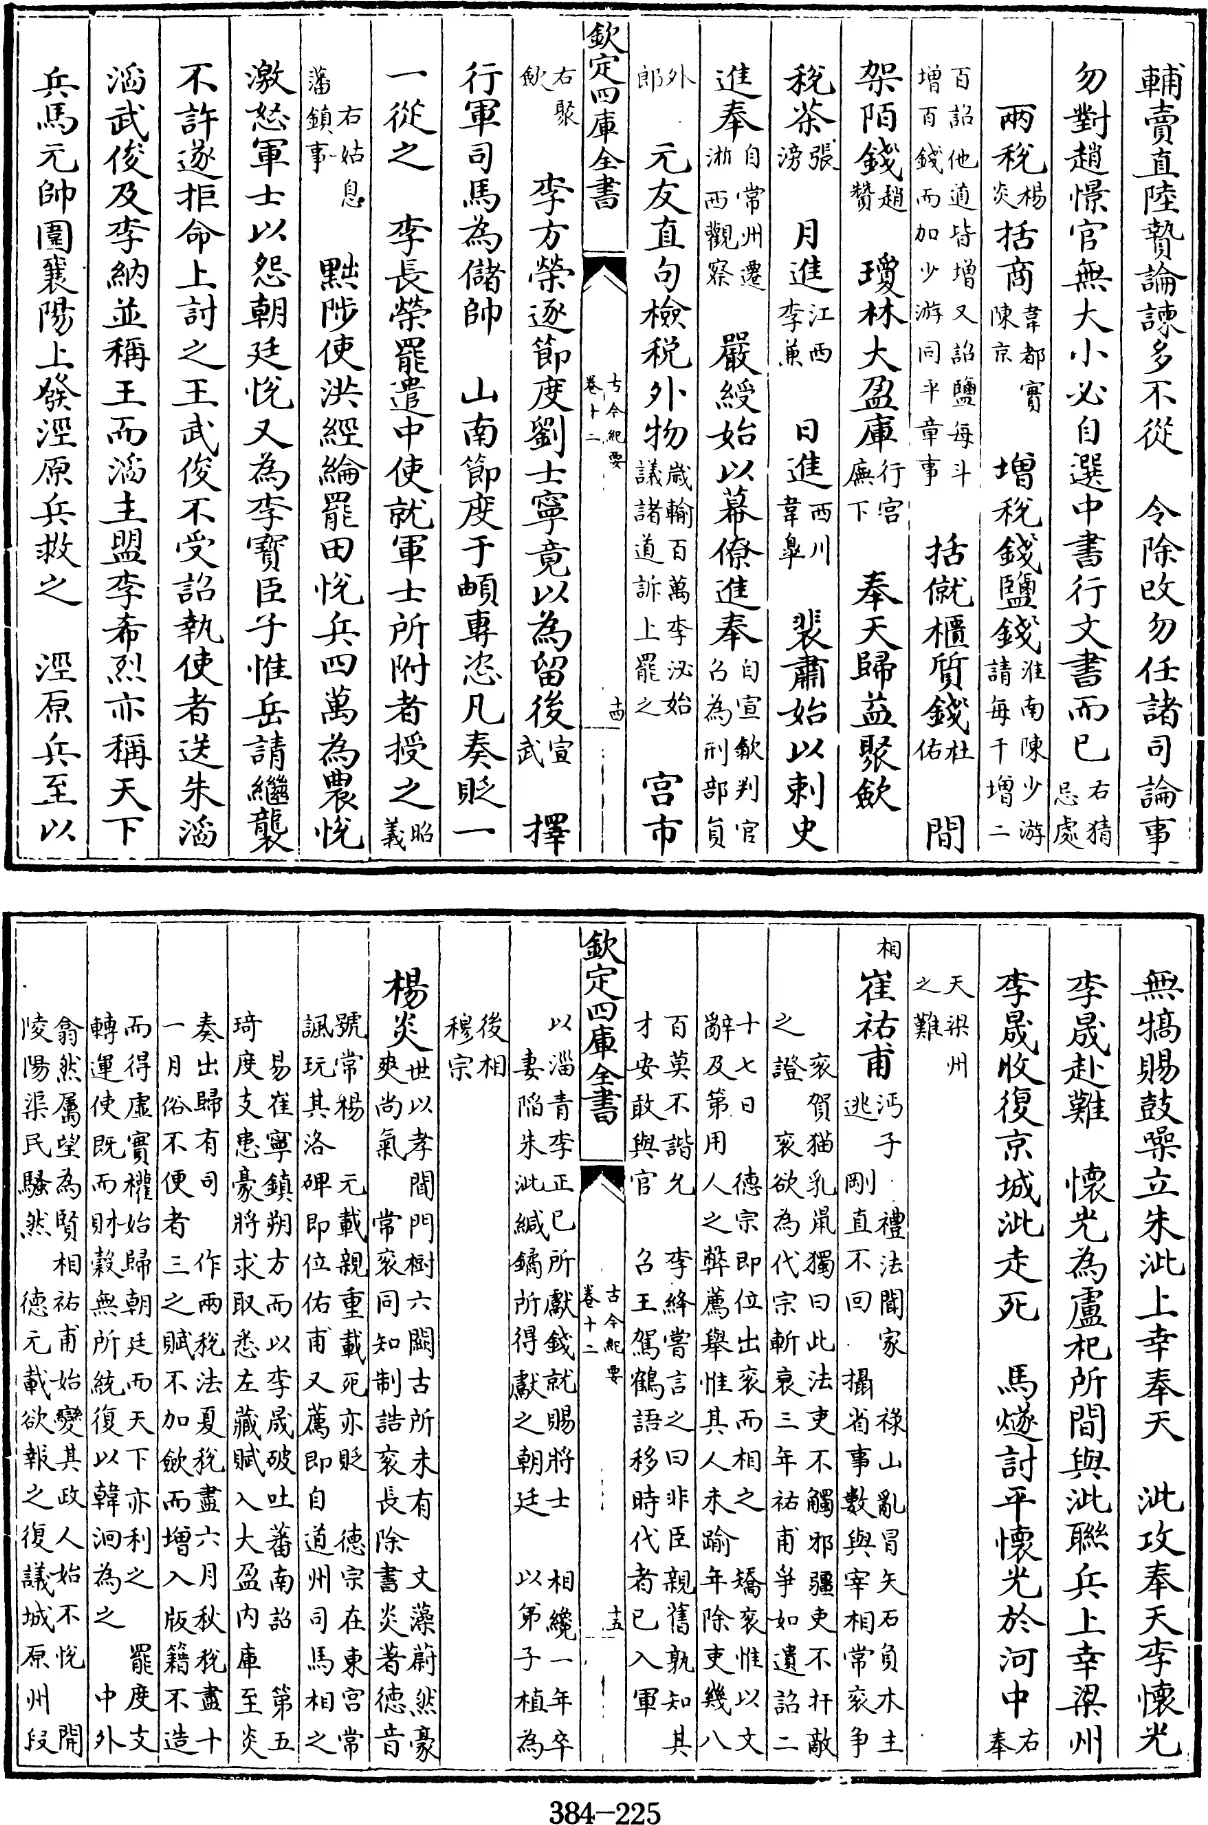 輔賣直陸贄論諫多不從　令除改勿任諸司論事
勿對趙憬官無大小必自選中書行文書而已右猜忌處
兩稅楊炎括商韋都賓陳京　增稅錢鹽錢淮南陳少游請每千增二
百詔他道皆增又詔鹽每斗增百錢而加少游同平章事　括僦櫃質錢杜佑　間
架陌錢趙贊　瓊林大盈庫行宮廡下　奉天歸益聚斂
稅茶張滂　月進江西李兼　日進西川韋臯　裴肅始以刺史
進奉自常州遷浙西觀察　嚴綬始以幕僚進奉自宣歙判官召為刑部員
外郎　元友直句檢稅外物歲輸百萬李泌始議諸道訴上罷之　宮市
欽定四庫全書　古今紀要卷十二　十四
右聚斂　李方榮逐節度劉士寧竟以為留後宣武　擇
行軍司馬為儲帥　山南節度于頔專恣凡奏貶一
一從之　李長榮罷遣中使就軍士所附者授之昭義
右姑息藩鎮事　黜陟使洪經綸罷田悅兵四萬為農悅
激怒軍士以怨朝廷悅又為李寶臣子惟岳請繼襲
不許遂拒命上討之王武俊不受詔執使者送朱滔
滔武俊及李納並稱王而滔主盟李希烈亦稱天下
兵馬元帥圍襄陽上發涇原兵救之　涇原兵至以
無犒賜鼓噪立朱泚上幸奉天　泚攻奉天李懷光
李晟赴難　懷光為盧杞所間與泚聯兵上幸梁州
李晟收復京城泚走死　馬燧討平懷光於河中右奉
天梁州之難
相
崔祐甫沔子　禮法聞家　祿山亂冒矢石負木主
逃　剛直不回　攝省事數與宰相常衮爭
衮賀猫乳鼠獨曰此法吏不觸邪疆吏不扞敵
之證　衮欲為代宗斬衰三年祐甫爭如遺詔二
十七日　德宗即位出衮而相之　矯衮惟以文
辭及第用人之弊薦舉惟其人未踰年除吏幾八
百莫不諧允　李絳嘗言之曰非臣親舊孰知其
才安敢與官　召王駕鶴語移時代者已入軍
欽定四庫全書　古今紀要卷十二　十五
以淄青李正已所獻錢就賜將士　相纔一年卒
妻陷朱泚緘鐍所得獻之朝廷　以弟子植為
後相穆宗
楊炎世以孝聞門樹六闕古所未有　文藻蔚然豪
爽尚氣　常衮同知制誥衮長除書炎著德音
號常楊　元載親重載死亦貶　德宗在東宮常
諷玩其洛碑即位佑甫又薦即自道州司馬相之
易崔寧鎮朔方而以李晟破吐蕃南詔　第五
琦度支患豪將求取悉左藏賦入大盈內庫至炎
奏出歸有司　作兩稅法夏稅盡六月秋稅盡十
一月俗不便者三之賦不加斂而增入版籍不造
而得虛實權始歸朝廷而天下亦利之　罷度支
轉運使既而財穀無所統復以韓洄為之　中外
翕然屬望為賢相祐甫始變其政人始不悅　開
陵陽渠民騷然　德元載欲報之復議城原州段
384-225